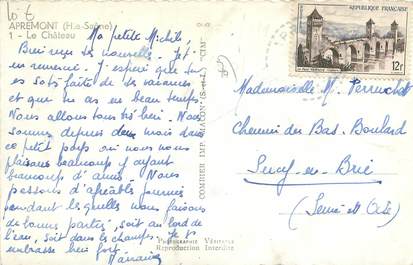 APREMONT (Hte-Saône)
1 - Le Château
Ma petite Michèle
Bien reçu tes nouvelles. Je t'
en remercie. J'espère que tu
es satisfaite de tes vacances
et que tu as eu beau temps.
Nous allons tous très bien. Nous
sommes depuis deux mois dans
ce petit pays où nous nous
plaisons beaucoup y ayant
beaucoup d'amis. Nous
passons d'agréables journées
pendant lesquelles nous faisons
de bonnes parties, soit au bord de
l'eau, soit dans les champs. Je t'
embrasse bien fort.
COMBIER IMP. MACON (S.-et-L.) "CIM"
Photographie Véritable
Reproduction Interdite
REPUBLIQUE FRANÇAISE
12F
Mademoiselle M. Perruchot
Chemin des Bas-Boulard
Sucy-en-Brie
(Seine et Oise)